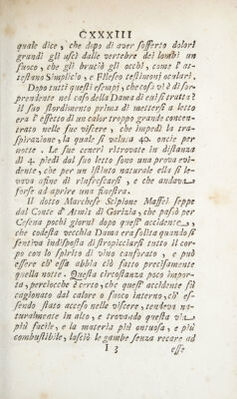 CXXXIII
quale dice, che dopo di aver sofferto dolori
grandi gli uscì dalle vertebre dei lombi un
fuoco, che gli bruciò gli occhi, come l' at-
testano Simplicio, e Filoseo testimonj oculari.
Dopo tutti questi esempj, che cosa v'è di sor-
prendente nel caso della Dama di cui si tratta?
il suo stordimento prima di mettersi a letto
era l' effetto di un calor troppo grande concen-
trato nelle sue viscere, che impedì la tra-
spirazione, la quale si valuta 40. oncie per
notte. Le sue ceneri ritrovate in distanza
di 4. piedi dal suo letto sono una prova evi-
dente, che per un istinto naturale ella si le-
vava affine di rinfrescarsi, e che andava
forse ad aprire una finestra.
Il dotto Marchese Scipione Maffei seppe
dal Conte d' Atimis di Gorizia, che passò per
Cesena pochi giorni dopo quest' accidente,
che codesta vecchia Dama era solita quando si
sentiva indisposta di stropicciarsi tutto il cor-
po con lo spirito di vino canforato, e può
essere ch' essa abbia ciò fatto precisamente
quella notte. Questa circostanza poco impor-
ta, perciocchè è certo, che quest' accidente sia
cagionato dal calore o fuoco interno, ch' es-
sendo stato acceso nelle viscere, tendeva na-
turalmente in alto, e trovando questa via
più facile, e la materia più untuosa, e più
combustibile, lasciò le gambe senza recare ad
I 3 esse